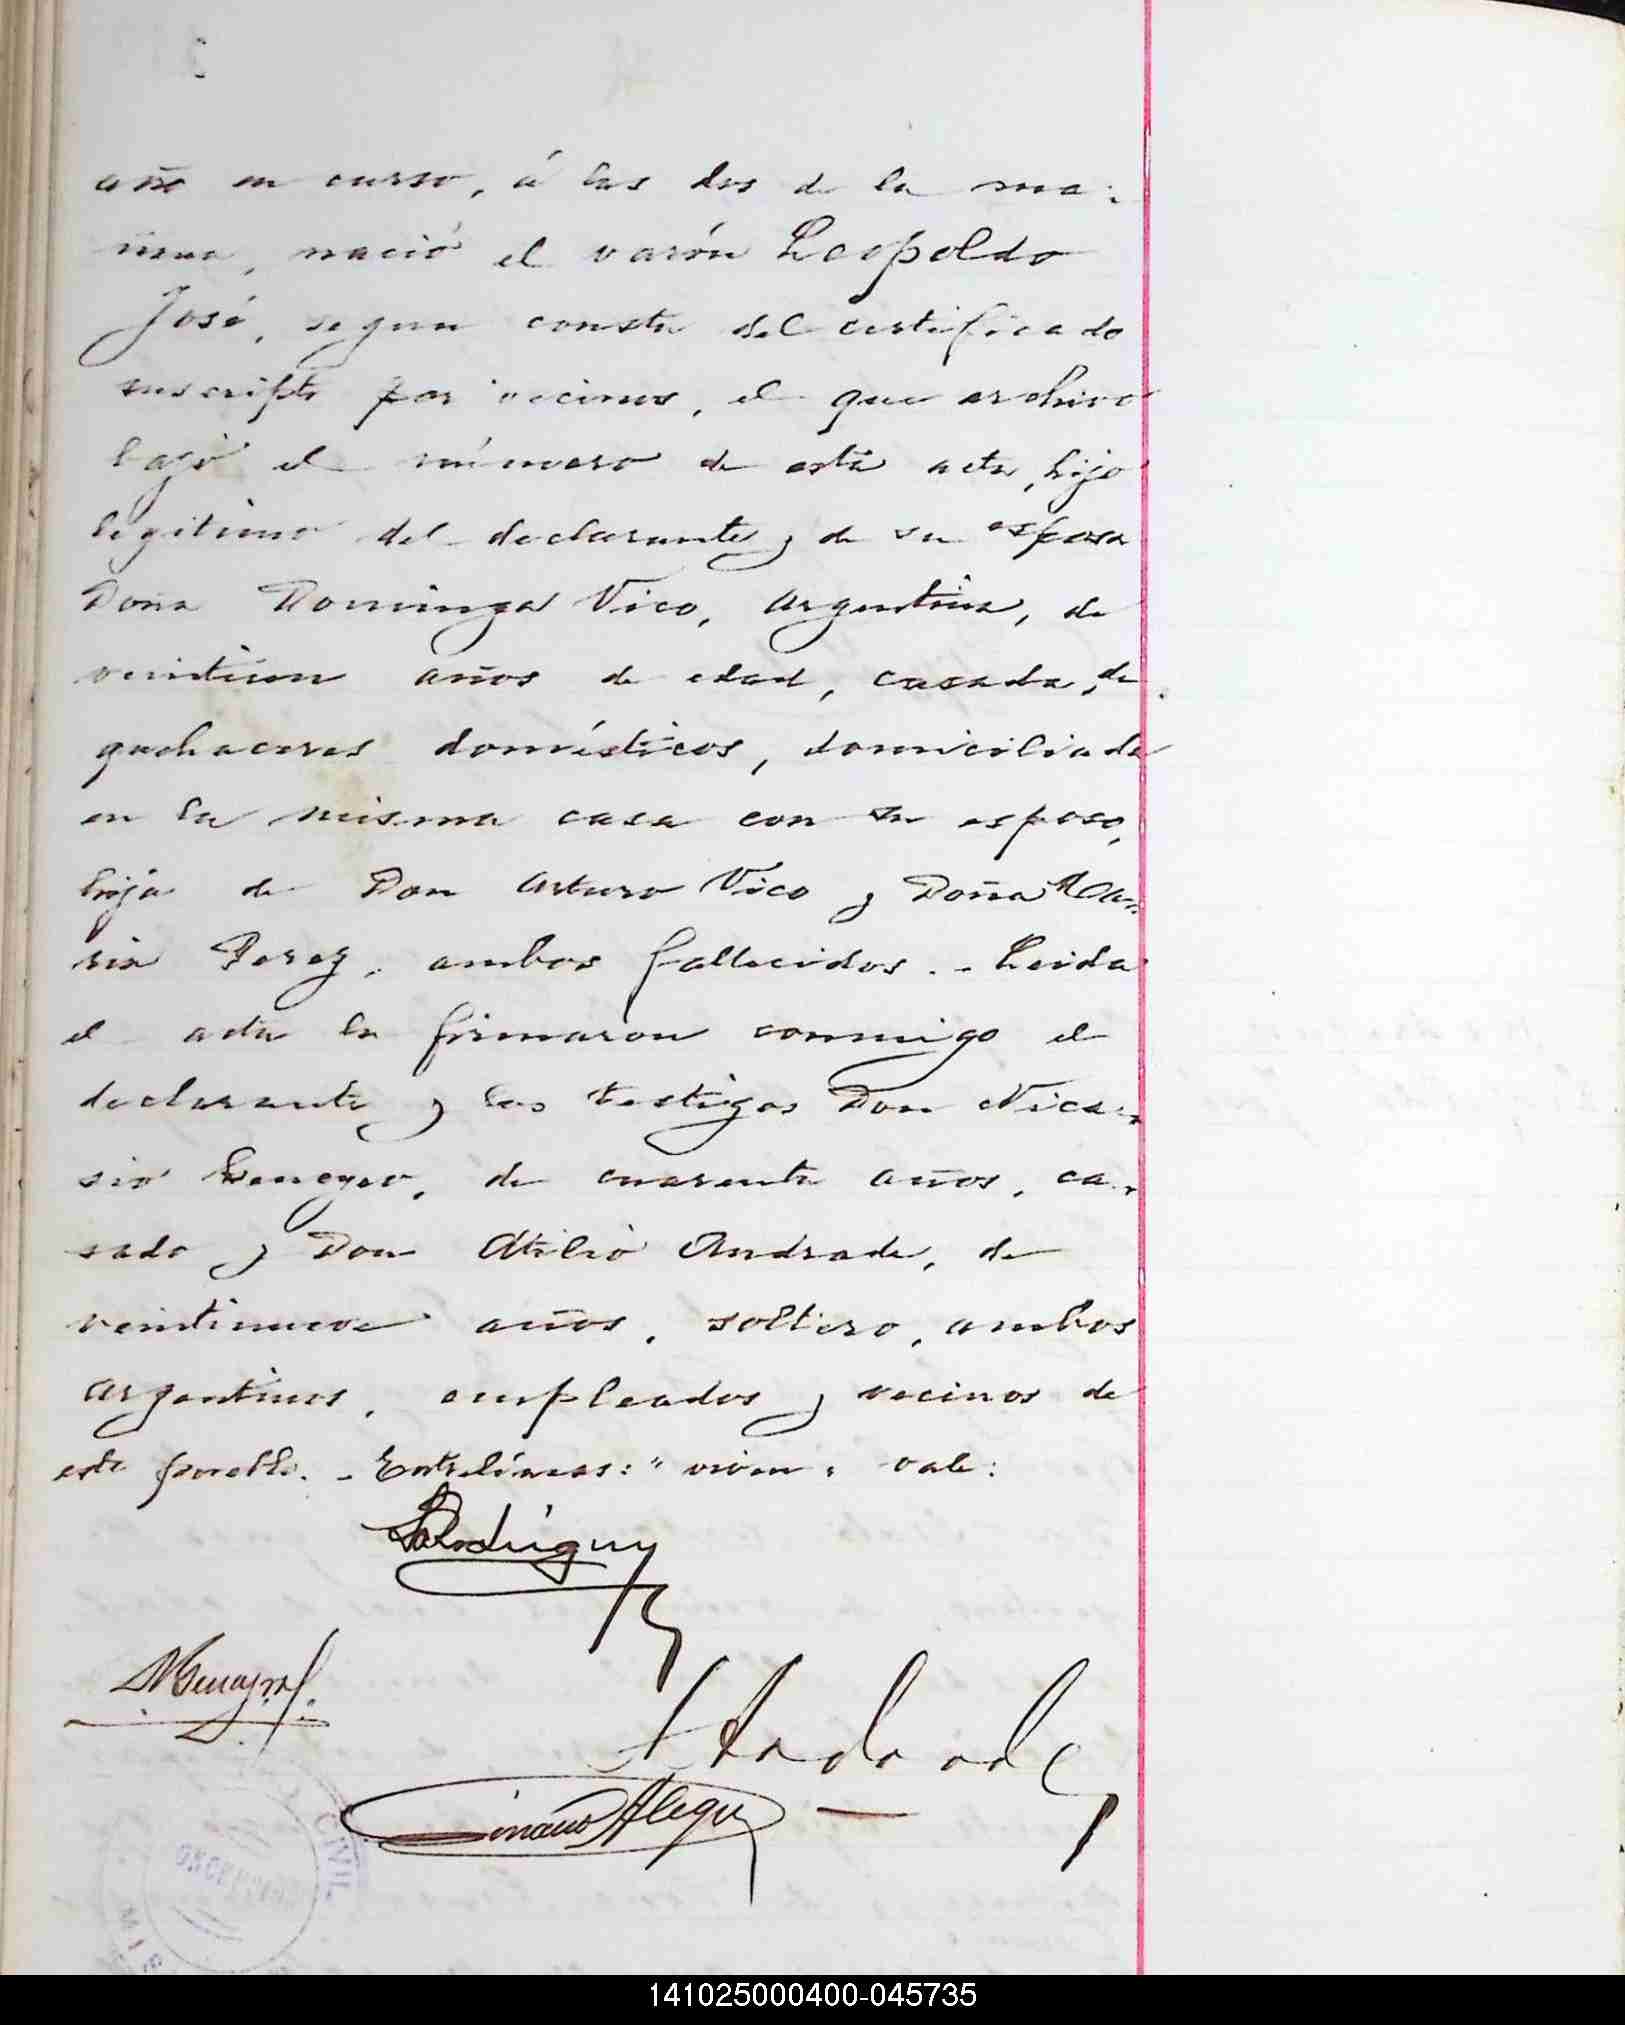 año en curso, á las dos de la ma-
ñana, nació el varón Leopoldo
José, segun consta del certificado
suscripto por vecinos, el que archivo
bajo el número de esta acta, hijo
legitimo del declarante y de su esposa
Doña Dominga Vico, argentina, de
veintiun años de edad, casada, de
quehaceres domésticos, domiciliada
en la misma casa con su esposo,
hija de Don Arturo Vico y Doña Ma-
ria Perez, ambos fallecidos.- Leida
el acta la firmaron conmigo el
declarante y los testigos Don Nica-
sio de cuarenta años, ca-
sado y Don Atilio Andrade, de
veintinueve años, soltero, ambos
argentinos, empleados y vecinos de
este pueblo. - Entrelíneas: "viven" vale:
Rodriguez
Andrade
Alegre
CIVIL
141025000400-045735